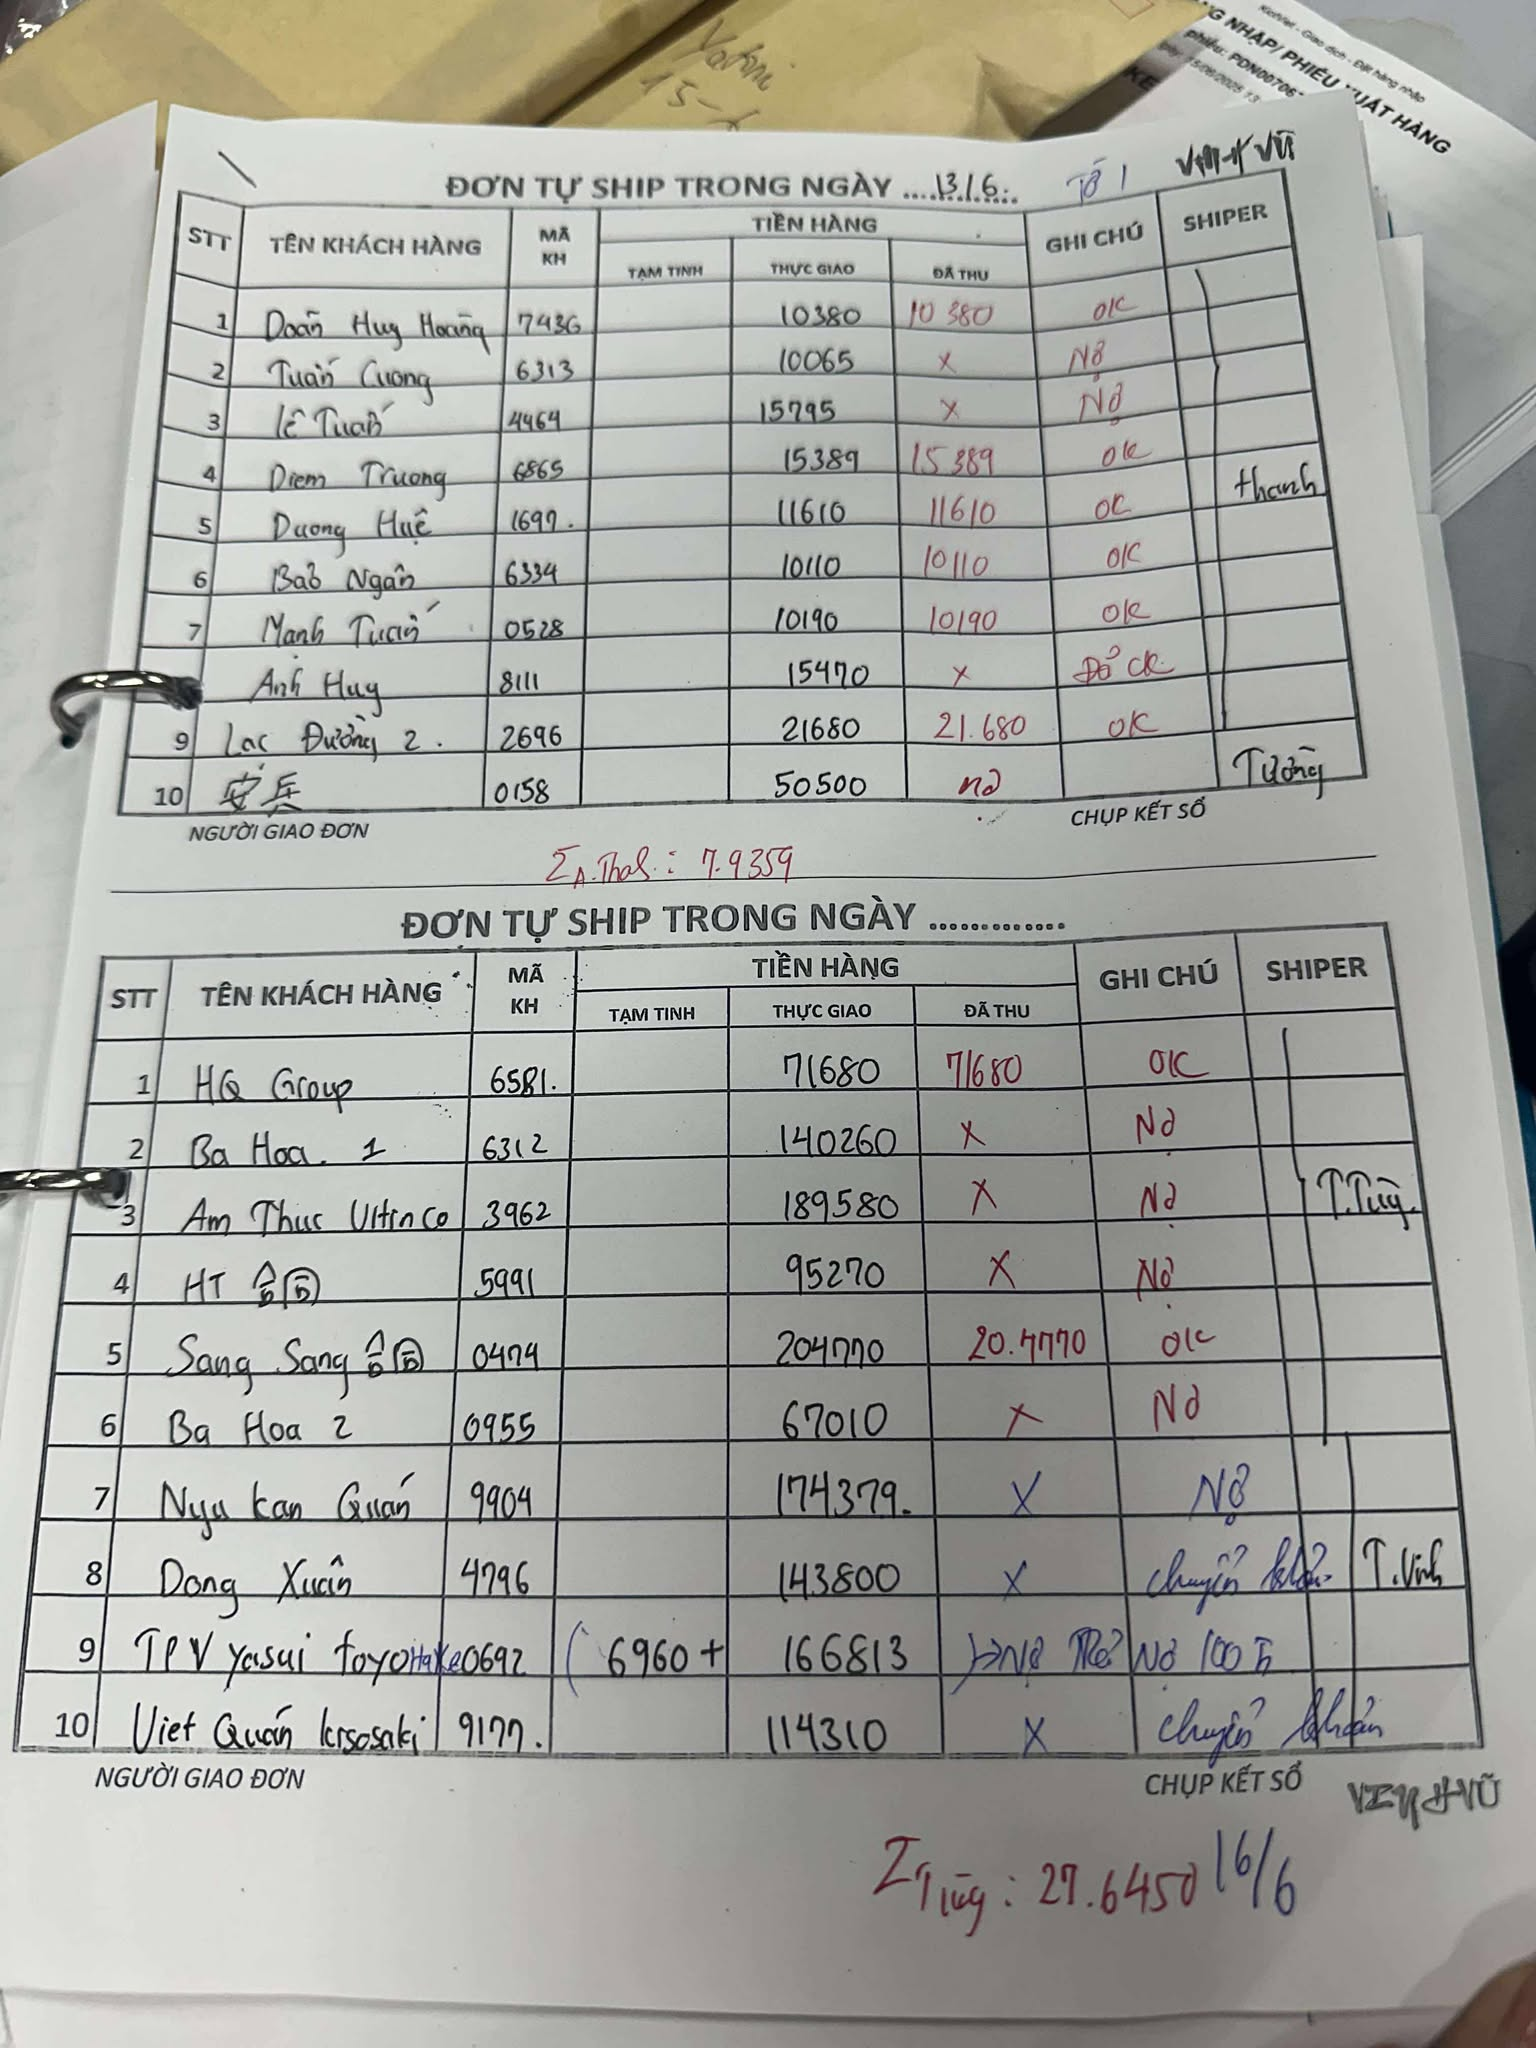 Yatoni
15-
KiotViet - Giao dịch - Đặt hàng nhập
G NHẬP/ PHIẾU XUẤT HÀNG
phiếu: PDN00706
ngày: 15/06/2025 13
ĐƠN TỰ SHIP TRONG NGÀY ....13/6. Tờ 1 VŨ
STT TÊN KHÁCH HÀNG MÃ KH TIỀN HÀNG GHI CHÚ SHIPER
TẠM TINH THỰC GIAO ĐÃ THU
1 Doãn Huy Hoàng 7436 10380 10 380 OK
2 Tuấn Cương 6313 10065 x Nợ
3 Lê Tuấn 4464 15795 x Nợ
4 Diem Truong 6865 15389 15 389 OK thanh
5 Duong Huệ 1697. 11610 11610 OK
6 Bảo Ngân 6334 10110 10110 OK
7 Mạnh Tuấn 0528 10190 10190 OK
Anh Huy 8111 15470 x Đổ CK
9 Lạc Đường 2. 2696 21680 21.680 OK
10 安兵 0158 50500 nợ Tường
NGƯỜI GIAO ĐƠN CHỤP KẾT SỔ
Σ A.Thah: 7.9359
ĐƠN TỰ SHIP TRONG NGÀY .............
STT TÊN KHÁCH HÀNG MÃ KH TIỀN HÀNG GHI CHÚ SHIPER
TẠM TINH THỰC GIAO ĐÃ THU
1 HQ Group 6581. 71680 71680 OK
2 Ba Hoa. 1 6312 140260 x Nợ
3 Am Thuc Vltinco 3962 189580 x Nợ T.Tùg.
4 HT 5991 95270 x Nợ
5 Sang Sang 0474 204770 20.4770 OK
6 Ba Hoa 2 0955 67010 x Nợ
7 Nyu kan Quán 9904 174379. x Nợ
8 Dong Xuân 4796 143800 x chuyển khoản T.Vinh
9 TPV yasui toyoHake 0692 ( 6960 + 166813 )→Nợ Nợ 100
10 Viet Quán kisosaki 9177. 114310 x chuyển khoản
NGƯỜI GIAO ĐƠN CHỤP KẾT SỔ VŨ
Σ Tùg: 27.6450 16/6